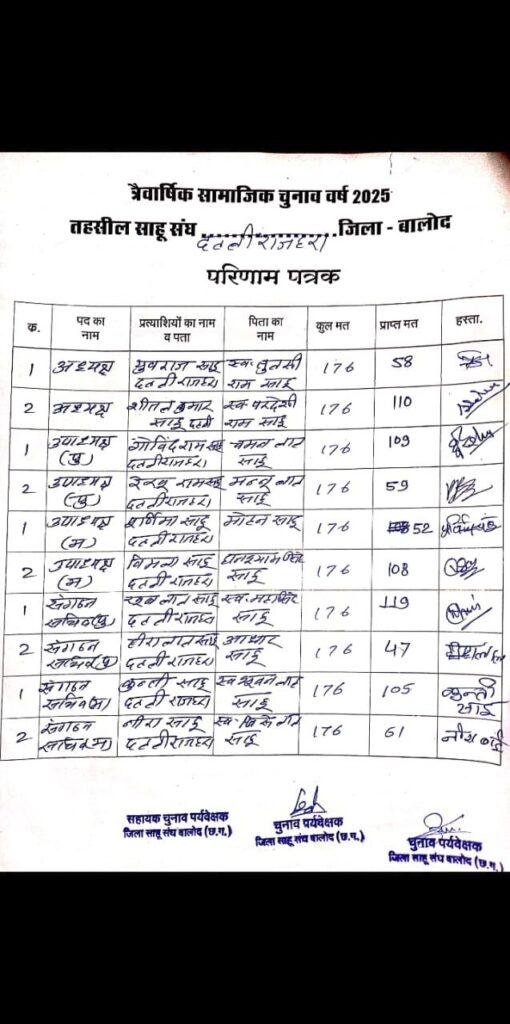 त्रैवार्षिक सामाजिक चुनाव वर्ष 2025
तहसील साहू संघ दल्लीराजहरा जिला - बालोद
परिणाम पत्रक
क्र. पद का नाम प्रत्याशियों का नाम व पता पिता का नाम कुल मत प्राप्त मत हस्ता.
1 अध्यक्ष युवराज साहू स्व. तुलसी 176 58
दल्लीराजहरा राम साहू
2 अध्यक्ष शीतल कुमार स्व. परदेशी 176 110
साहू दल्ली राम साहू
1 उपाध्यक्ष गोविंद राम साहू चमन लाल 176 109
(पु) दल्लीराजहरा साहू
2 उपाध्यक्ष राम साहू लाल 176 59
(पु) दल्लीराजहरा साहू
1 उपाध्यक्ष पूर्णिमा साहू मोहन साहू 176 52
(म) दल्लीराजहरा
2 उपाध्यक्ष विमला साहू 176 108
(म) दल्लीराजहरा साहू
1 संगठन लाल साहू स्व. 176 119
सचिव(पु) दल्लीराजहरा साहू
2 संगठन हीरालाल साहू आधार 176 47
सचिव(पु) दल्लीराजहरा साहू
1 संगठन कुन्ती साहू स्व. लाल 176 105 कुन्ती
सचिव(म) दल्ली राजहरा साहू साहू
2 संगठन नीरा साहू स्व. लाल 176 61 नीरा
सचिव(म) दल्लीराजहरा साहू
सहायक चुनाव पर्यवेक्षक
जिला साहू संघ बालोद (छ.ग.)
चुनाव पर्यवेक्षक
जिला साहू संघ बालोद (छ.ग.)
चुनाव पर्यवेक्षक
जिला साहू संघ बालोद (छ.ग.)